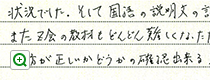 状況でした。そして国語の説明文の言
また Z会の教材もどんどん難しくなった
方が正しいかどうかの確認出来る